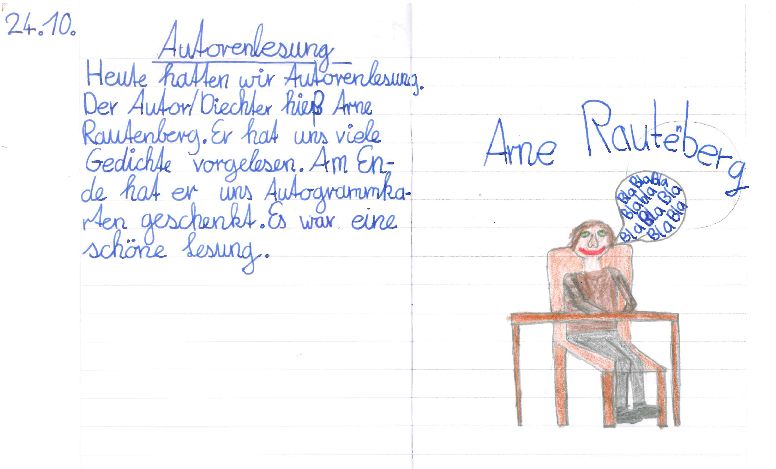 24.10.
Autorenlesung
Heute hatten wir Autorenlesung.
Der Autor/Diechter hieß Arne
Rautenberg. Er hat uns viele
Gedichte vorgelesen. Am En-
de hat er uns Autogrammka-
rten geschenkt. Es war eine
schöne Lesung.
Arne Rautenberg
BlaBlaBla
BlaBla Bla
Bla Bla Bla
Bla Bla